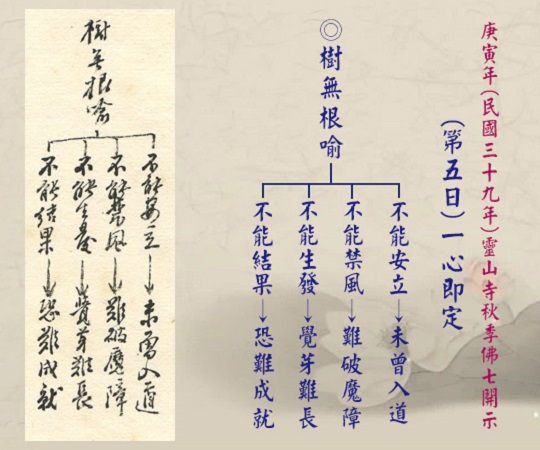 庚寅年(民國三十九年)靈山寺秋季佛七開示
(第五日)一心即定
◎樹無根喻
不能安立→未曾入道
不能禁風→難破魔障
不能生發→覺芽難長
不能結果→恐難成就
樹無根喻
不能安立→未曾入道
不能禁風→難破魔障
不能生發→覺芽難長
不能結果→恐難成就